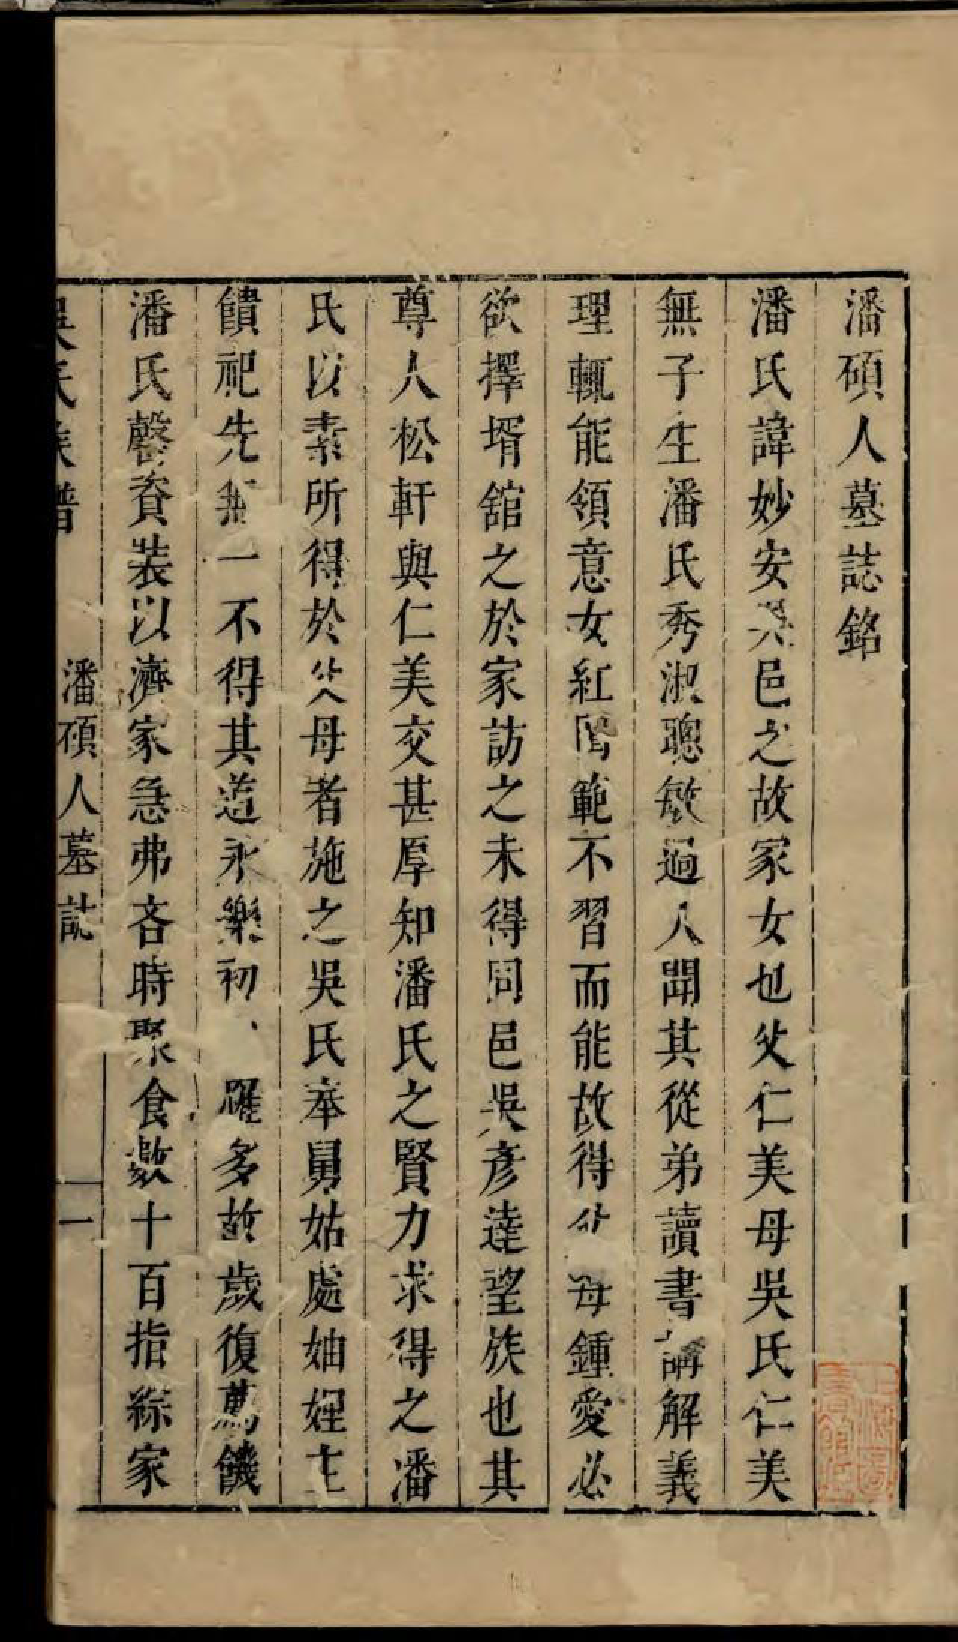 潘碩人墓誌銘
潘氏諱妙安邑之故家女也父仁美母吳氏仁美
無子生潘氏秀淑聰敏過人聞其從弟讀書講解義
理輒能領意女紅閫範不習而能故得父母鍾愛必
欲擇壻舘之於家訪之未得同邑吳彥達望族也其
尊人松軒與仁美交甚厚知潘氏之賢力求得之潘
氏以素所得於父母者施之吳氏奉舅姑處妯娌主
饋祀先無一不得其道永樂初罹多故歲復荐饑
潘氏罄資装以濟家急弗吝時聚食數十百指綜家
吳氏族譜 潘碩人墓誌 一
上海圖書館藏